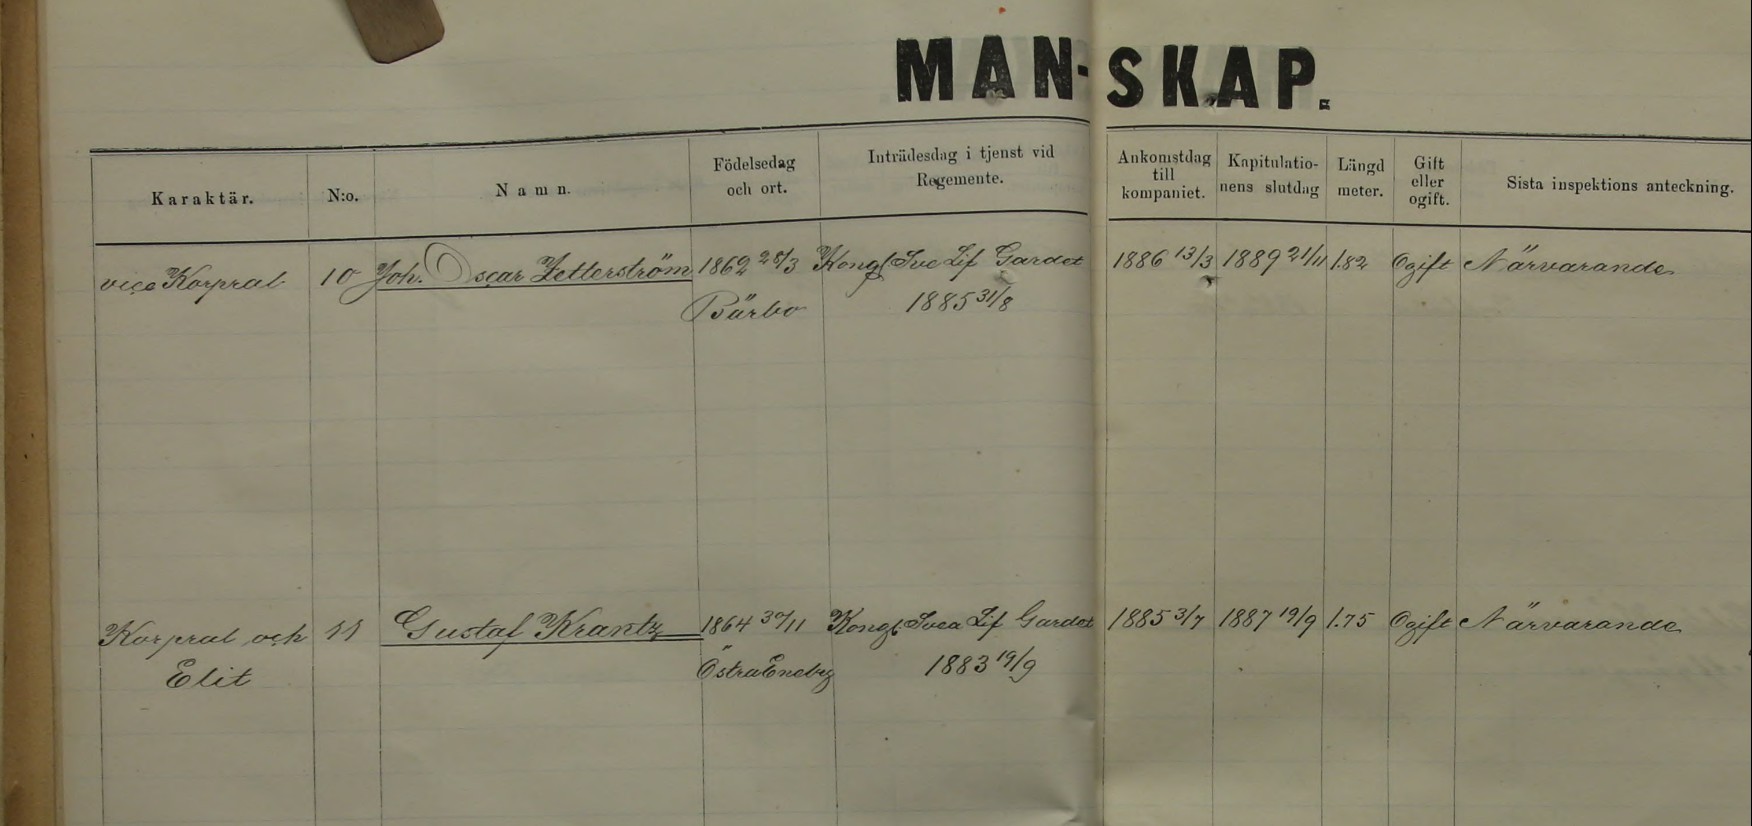 MAN-SKAP.
Karaktär. N:o. Namn. Födelsedag och ort. Inträdesdag i tjenst vid Regemente. Ankomstdag till kompaniet. Kapitulationens slutdag Längd meter. Gift eller ogift. Sista inspektions anteckning.
vice Korpral 10 Joh. Oscar Zetterström 1862 28/3 Kongl Sve Lif Gardet 1886 13/3 1889 21/11 1.82 Ogift Närvarande
Bärbo 1885 31/8
Korpral och 11 Gustaf Krantz 1864 30/11 Kongl Svea Lif Gardet 1885 3/7 1887 19/9 1.75 Ogift Närvarande
Elit Östra Eneby 1883 19/9